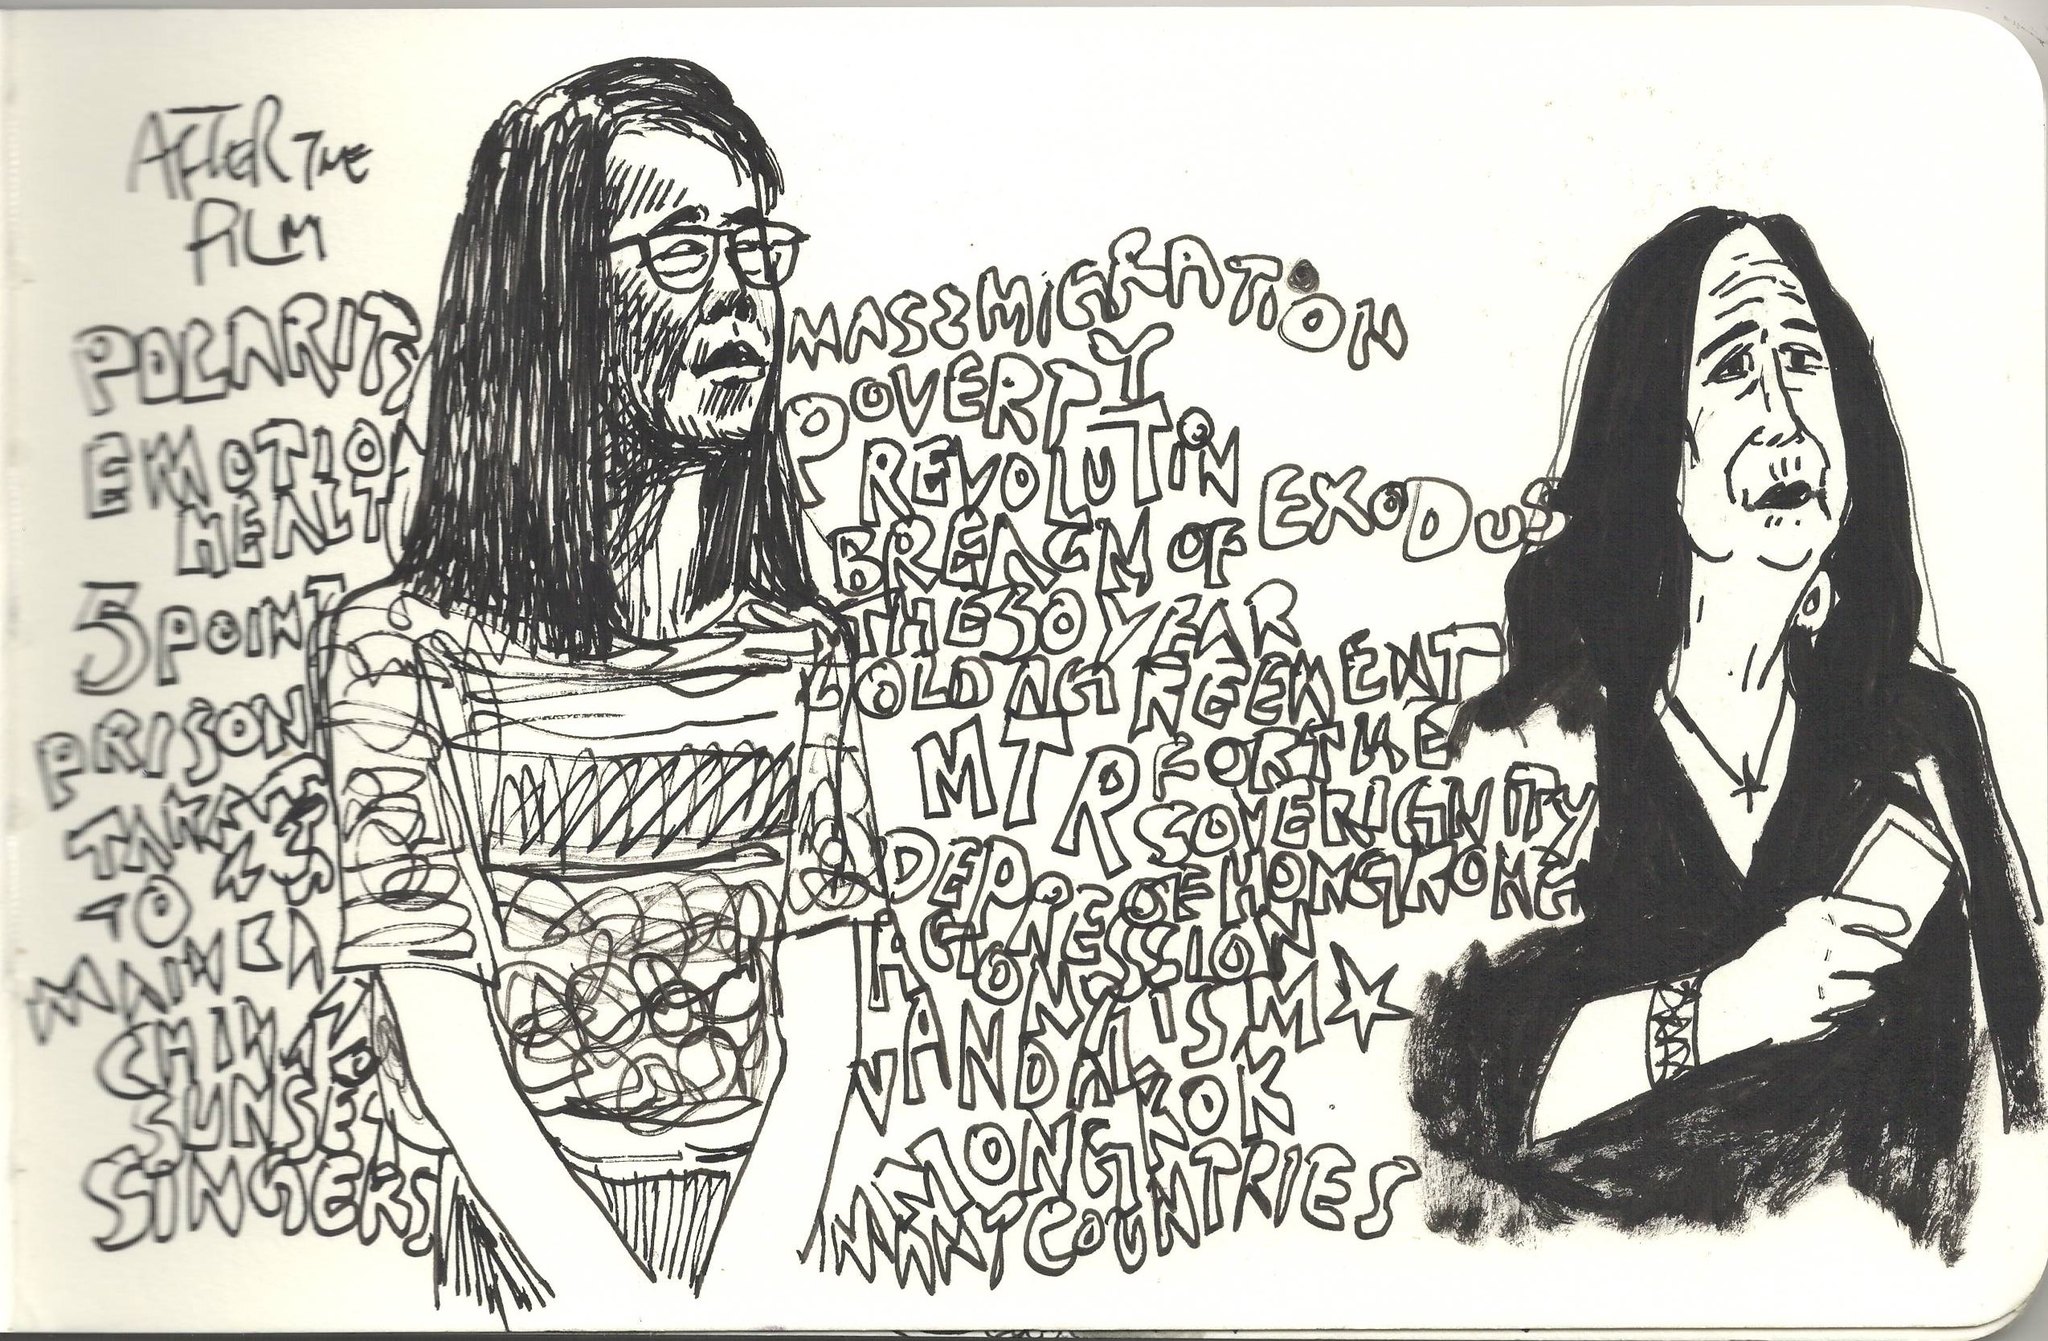 AFTER THE
FILM
POLARITY
EMOTION
HEALT
5 POINT
PRISON
TO
CHINA
SUNSET
SINGERS
MASS MIGRATION
POVERTY
REVOLUTIN
EXODUS
BREACH OF
THE 50 YEAR
OLD AGREEMENT
MTR FOR THE
SOVERIGNITY
OF HONG KONG
DEPRESSION
AGONE
VANDALISM
MONGKOK
MANY COUNTRIES